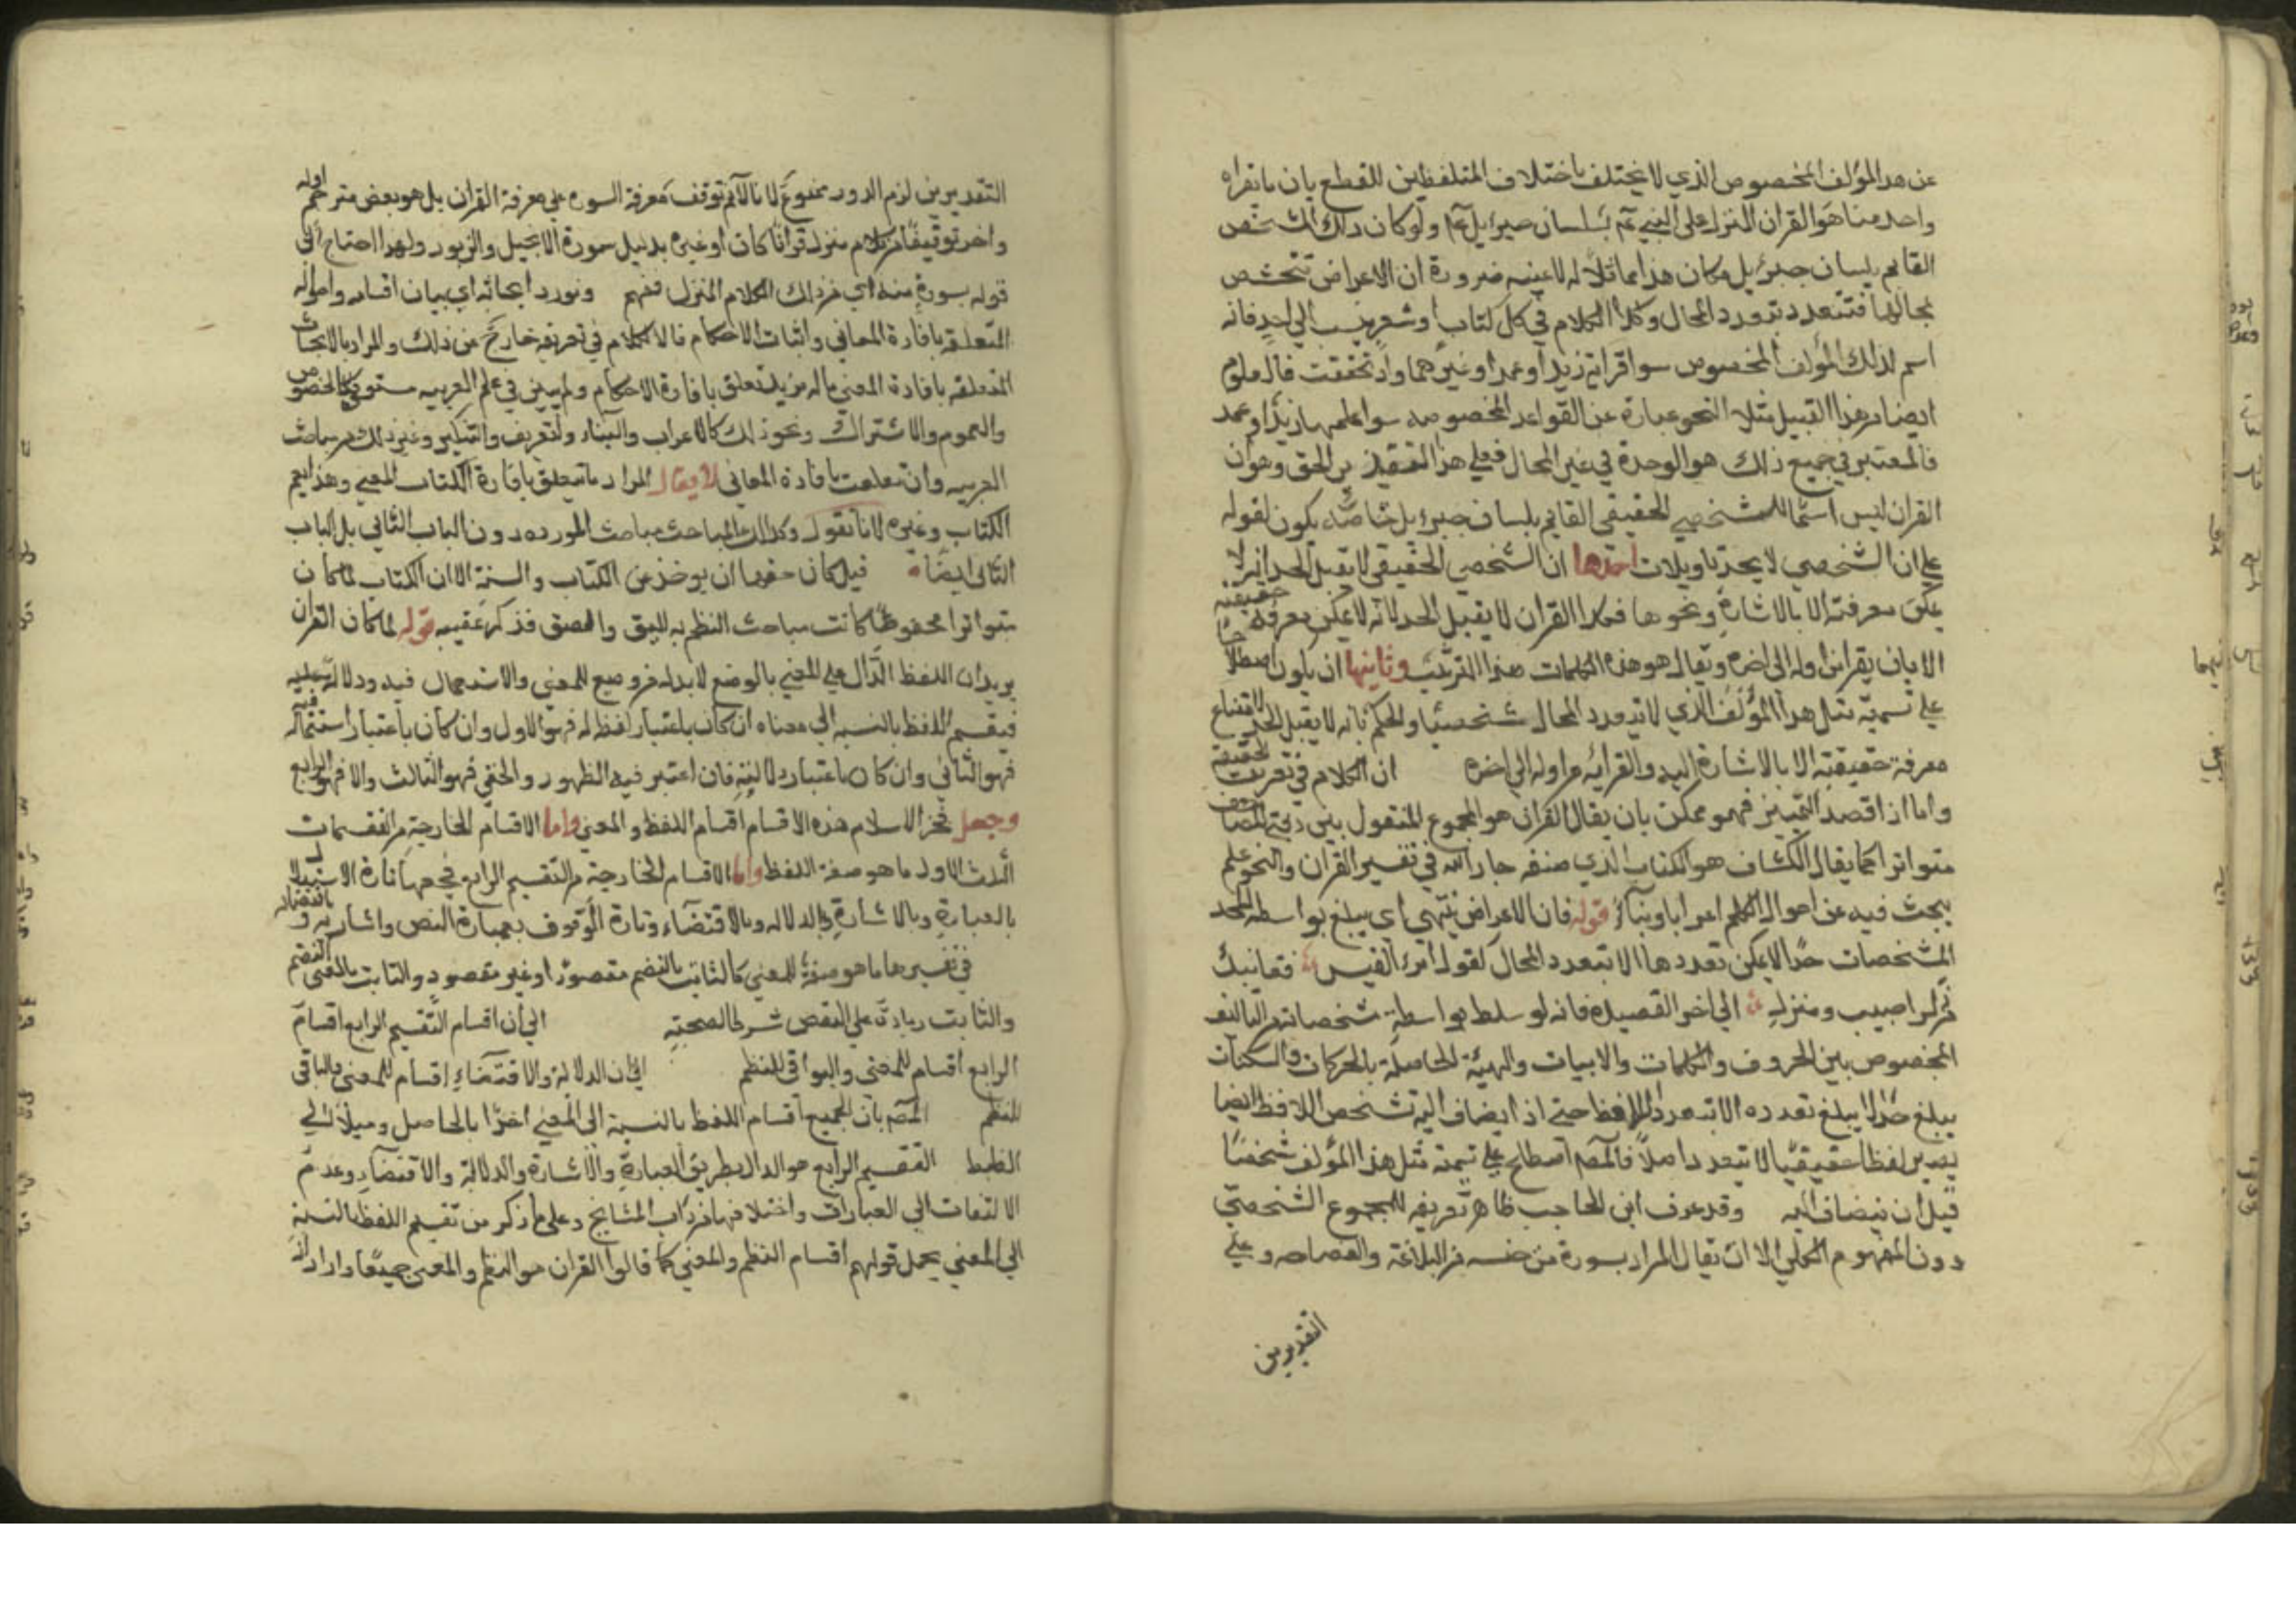 عن هذا المؤلف المخصوص الذي لا يختلف باختلاف المتلفظين للقطع بان ما يقراه
واحد منا هو القران المنزل على النبي عم بلسان جبرائيل عم ولو كان ذلك الشخص
القايم بلسان جبرئيل لكان هذا مماثلا له لا عينه ضرورة ان الاعراض تتشخص
بمحالها فتتعدد بتعدد المحال وكذا الكلام في كل كتاب او شعر ينسب الى احد فانه
اسم لذلك المؤلف المخصوص سوا قراه زيد او عمرو او غيرهما واذ تحققت فالعلوم
ايضا من هذا القبيل مثلا النحو عبارة عن القواعد المخصوصه سوا علمها زيد او عمرو
فالمعتبر في جميع ذلك هو الوحدة في غير المحال فعلى هذا التقدير الحق وهو ان
القران ليس اسما للشخصي الحقيقي القايم بلسان جبرئيل خاصة يكون لقوله
على ان الشخصي لا يحد تاويلات احدها ان الشخصي الحقيقي لا يقبل الحد لانه لا
يمكن معرفته الا بالاشارة ونحوها فكذا القران لا يقبل الحد لانه لا يمكن معرفة حقيقته
الا بان يقرا من اوله الى اخره ويقال هو هذه الكلمات بهذا الترتيب وثانيها ان يكون اصطلاحا
على تسمية مثل هذا المؤلف الذي لا يتعدد الا بتعدد المحال شخصيا والحكم بانه لا يقبل الحد لامتناع
معرفة حقيقته الا بالاشارة اليه والقرائه من اوله الى اخره ان الكلام في تعريف الحقيقة
واما اذا قصد التمييز فهو ممكن بان يقال القران هو المجموع المنقول بين دفتي المصاحف
متواترا كما يقال الكشاف هو الكتاب الذي صنفه جار الله في تفسير القران والنحو علم
يبحث فيه عن احوال الكلم اعرابا وبناء قوله فان الاعراض تنتهي اي يبلغ بواسطة
المشخصات حدا لا يمكن تعددها الا بتعدد المحال كقول امرئ القيس قفا نبك
من ذكرى حبيب ومنزل الى اخر القصيدة فانه بواسطة مشخصاته من التاليف
المخصوص بين الحروف والكلمات والابيات والهيئة الحاصلة بالحركات والسكنات
يبلغ حدا لا يبلغ تعدده الا بتعدد اللافظ حتى اذا يضاف اليه تشخص اللافظ ايضا
يصير لفظا حقيقيا لا يتعدد اصلا فالمص اصطلح على تسمية مثل هذا المؤلف شخصيا
قبل ان ينضاف اليه وقد عرف ابن الحاجب ظاهر تعريفه للمجموع الشخصي
دون المفهوم الكلي الا ان يقال المراد بسورة من جنسه في البلاغة والفصاحه وعلى
التقديرين
التقديرين لزم الدور ممنوع لانا لا نم توقف معرفة السوره على معرفة القران بل هو بعض مترجم اوله
واخره توقيفا من كلام منزل قرانا كان او غيره بدليل سورة الانجيل والزبور ولهذا احتاج الى
قوله بسورة منه اي من ذلك الكلام المنزل فافهم ونورد ابحاثه اي بيان اقسامه واحواله
المتعلقه بافادة المعاني واثبات الاحكام فالكلام في تعريفه خارج عن ذلك والمراد بالابحاث
المتعلقه بافادة المعنى ما له مزيد تعلق بافادة الاحكام ولم يبين في علم العربيه مستوفى كالخصوص
والعموم والاشتراك ونحو ذلك كالاعراب والبناء والتعريف والتنكير وغير ذلك من مباحث
العربيه وان تعلقت بافادة المعاني لا يقال المراد ما يتعلق بافادة الكتاب المعنى وهذا يعم
الكتاب وغيره لانا نقول وكذلك المباحث الموردة دون الباب الثاني بل الباب
الثاني ايضا قيل كان حقها ان يوخر عن الكتاب والسنة الا ان الكتاب لما كان
متواترا محفوظا كانت مباحث النظم به اليق والصق فذكر عقيبه قوله لما كان القران
يريد ان اللفظ الدال على المعنى بالوضع لا بد له من وضع للمعنى والاستعمال فيه ودلالة عليه
فتقسيم اللفظ بالنسبه الى معناه ان كان باعتبار وضعه له فهو الاول وان كان باعتبار استعماله فيه
فهو الثاني وان كان باعتبار دلالته فان اعتبر فيه الظهور والخفي فهو الثالث والا فهو الرابع
وجعل فخر الاسلام هذه الاقسام اقسام اللفظ والمعنى واما الاقسام الخارجة من التقسيمات
الثلث الاول ما هو صفة اللفظ واما الاقسام الخارجة من التقسيم الرابع فجعلها تارة الاستدلال
بالعبارة وبالاشارة وبالدلاله وبالاقتضاء وتارة الوقوف بعبارة النص واشارته
في تفسيرها ما هو صفة للمعنى كالثابت بالنظم مقصودا او غير مقصود والثابت بالمعنى
والثابت زيادة على النص شرطا لصحته الى ان اقسام التقسيم الرابع اقسام
الرابع اقسام للمعنى والبواقي للنظم الى ان الدلالة والاقتضاء اقسام للمعنى والباقي
للنظم المص بان الجميع اقسام اللفظ بالنسبة الى المعنى اخذا بالحاصل وميلا الى
الضبط التقسيم الرابع هو الدال بطريق العبارة والاشارة والدلالة والاقتضاء وعدم
الالتفات الى العبارات واختلافها من داب المشايخ وعلى ما ذكر من تقسيم اللفظ بالنسبة
الى المعنى يحمل قولهم اقسام النظم والمعنى كما قالوا القران هو النظم والمعنى جميعا وارادوا